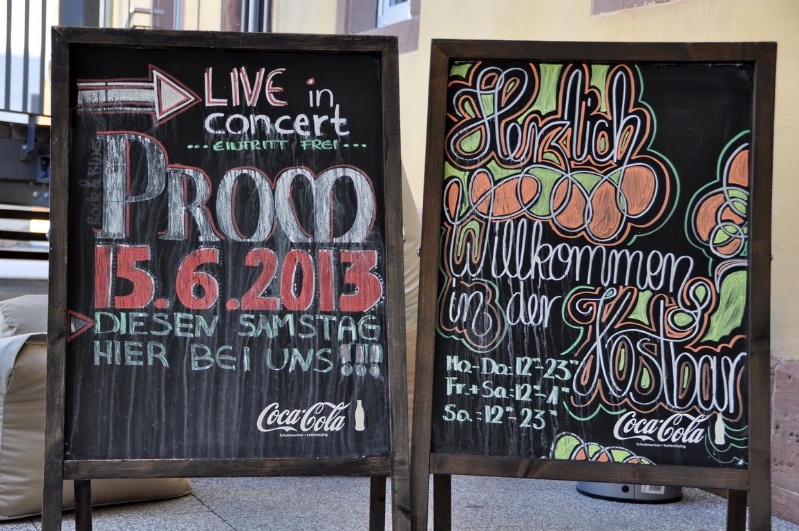 LIVE in
concert
... EINTRITT FREI ...
PROM
15.6.2013
DIESEN SAMSTAG
HIER BEI UNS!!!
Coca-Cola
Herzlich
Willkommen
in der
Kostbar
Mo-Do: 12°°-23°°
Fr.+Sa: 12°°-1°°
So.: 12°°-23°°
Coca-Cola